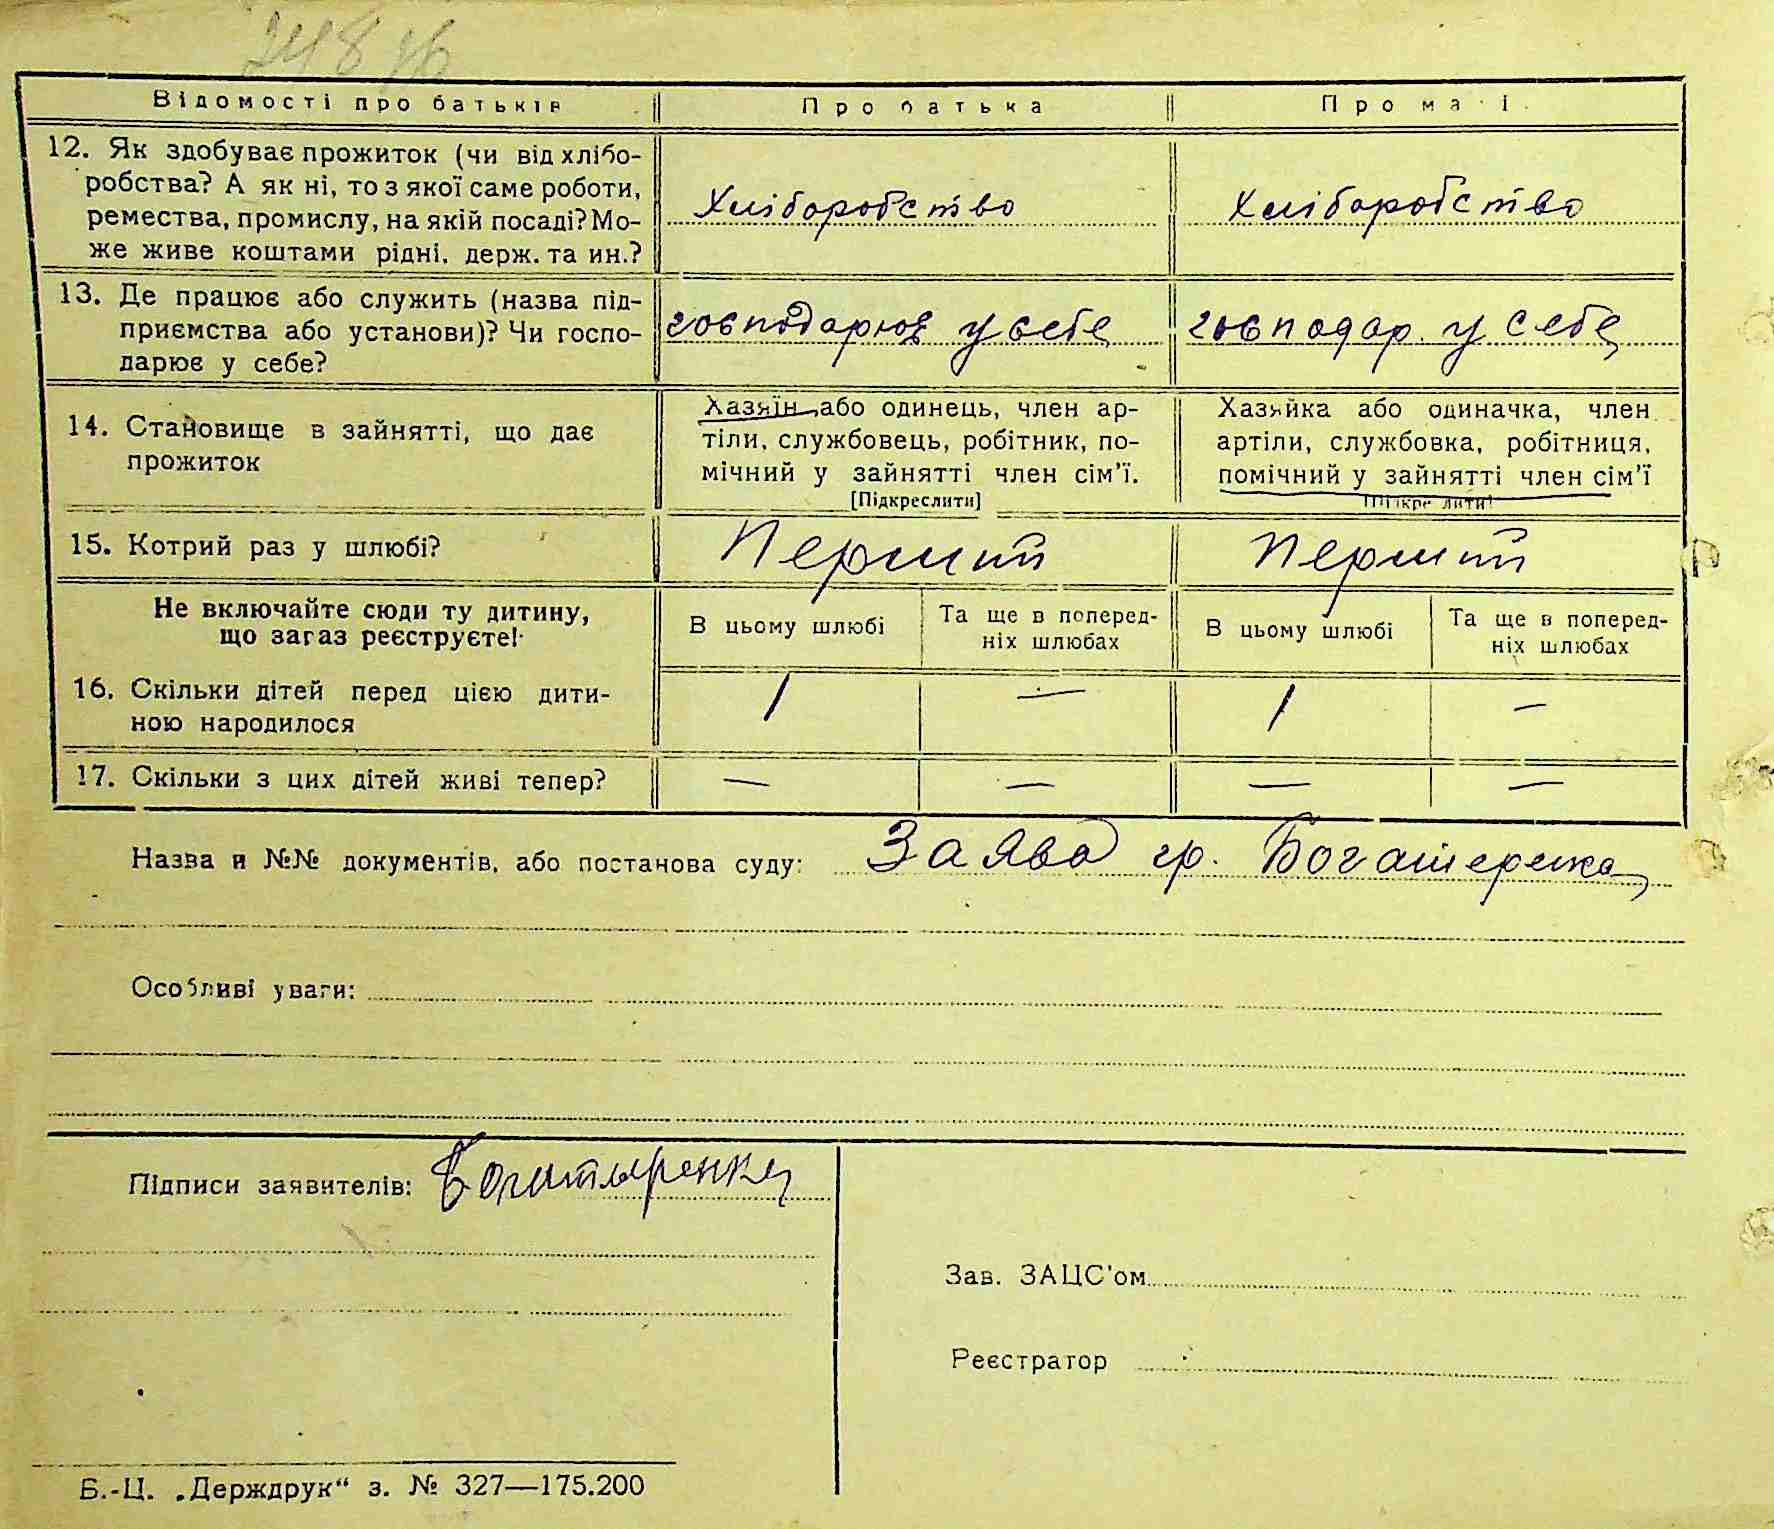 248
Відомості про батьків Про батька Про ма і
12. Як здобуває прожиток (чи від хлібо-
робства? А як ні, то з якої саме роботи,
ремества, промислу, на якій посаді? Мо-
же живе коштами рідні, держ. та ин.?
Хліборобство Хліборобство
13. Де працює або служить (назва під-
приємства або установи)? Чи госпо-
дарює у себе?
господарює у себе господар. у себе
14. Становище в зайнятті, що дає
прожиток
Хазяїн або одинець, член ар-
тіли, службовець, робітник, по-
мічний у зайнятті член сім'ї.
[Підкреслити]
Хазяйка або одиначка, член
артіли, службовка, робітниця,
помічний у зайнятті член сім'ї
Підкре лити
15. Котрий раз у шлюбі? Перший Перший
Не включайте сюди ту дитину,
що загаз реєструєте!
В цьому шлюбі
Та ще в поперед-
ніх шлюбах
В цьому шлюбі
Та ще в поперед-
ніх шлюбах
16. Скільки дітей перед цією дити-
ною народилося
1 — 1 —
17. Скільки з цих дітей живі тепер? — — — —
Назва и №№ документів, або постанова суду: Заява гр. Богатеренка
Особливі уваги:
Підписи заявителів: Богатыренко
Зав. ЗАЦС'ом
Реєстратор
Б.-Ц. „Держдрук“ з. № 327—175.200